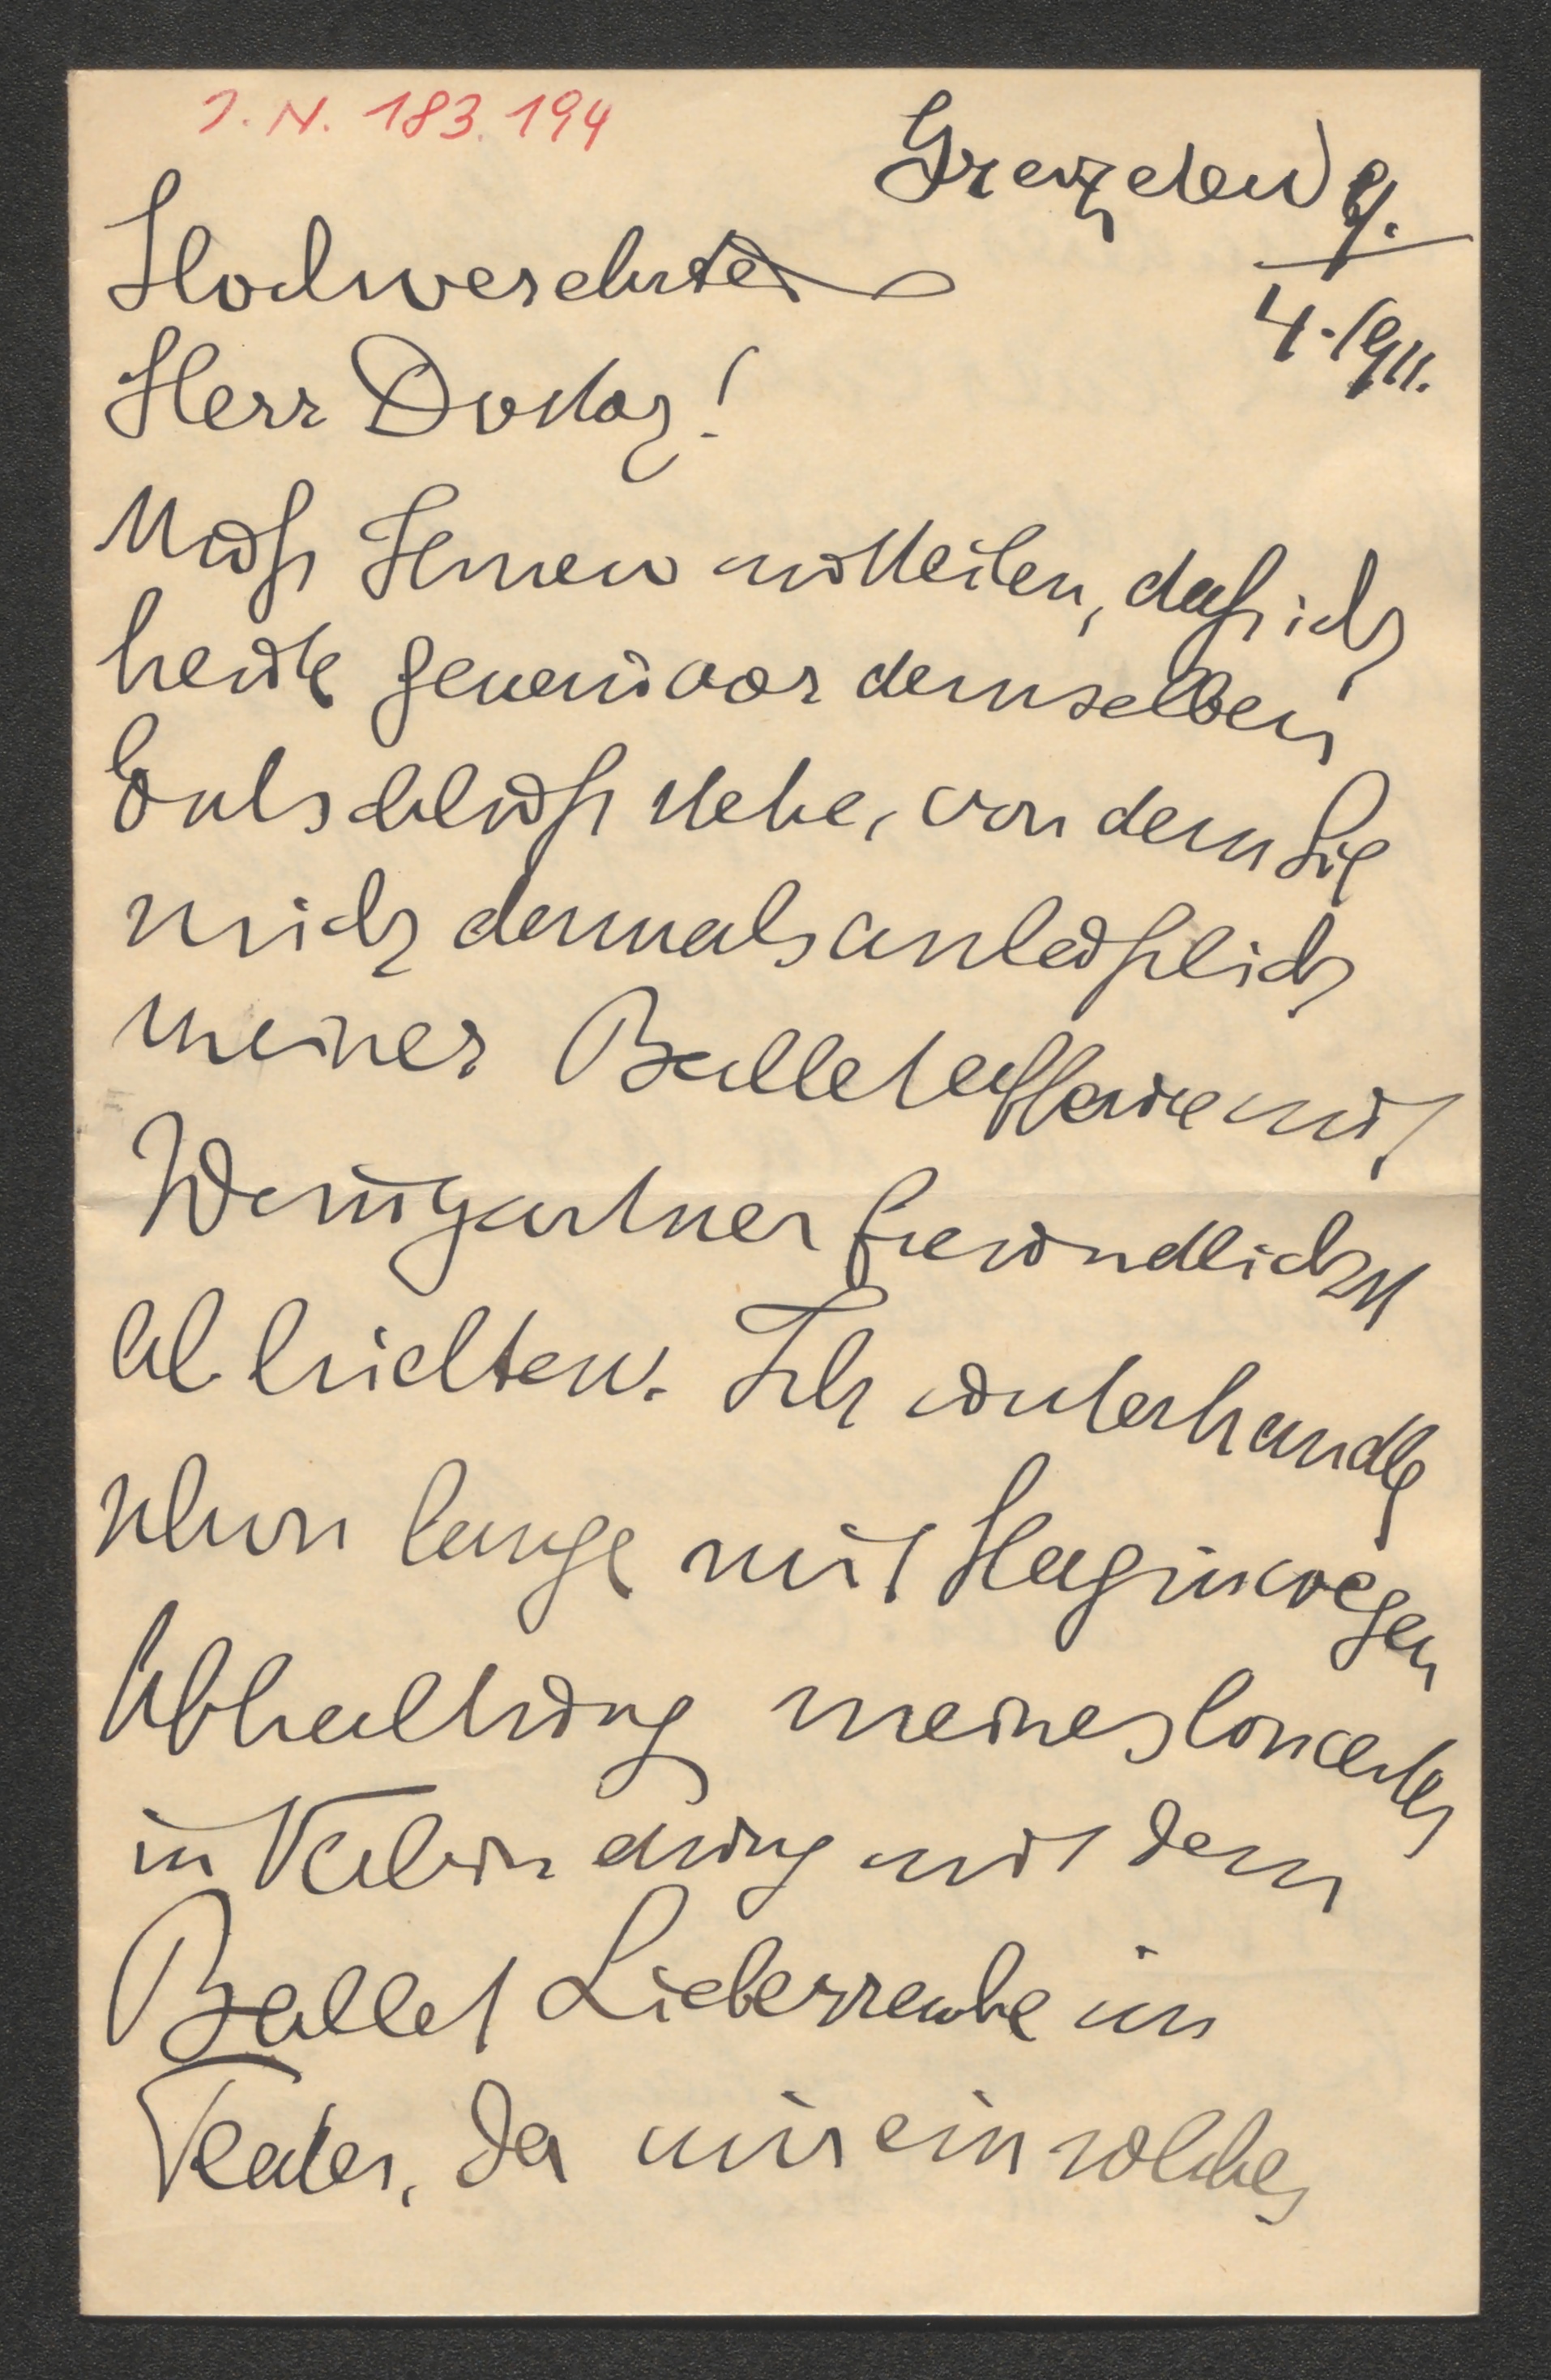 J. N. 183.194
Graz den 9.
4. 1911.
Hochverehrter
Herr Doctor!
Muß Ihnen mitteilen, daß ich
heute genau vor demselben
Entschluß stehe, von dem Sie
mich damals anläßlich
meiner Balletaffaire mit
Weingartner freundlichst
abhielten. Ich unterhandle
schon lange mit Hagin wegen
Abhaltung meines Concertes
in Verbindung mit dem
Ballet Lieberreube im
Teater, da mir ein solches